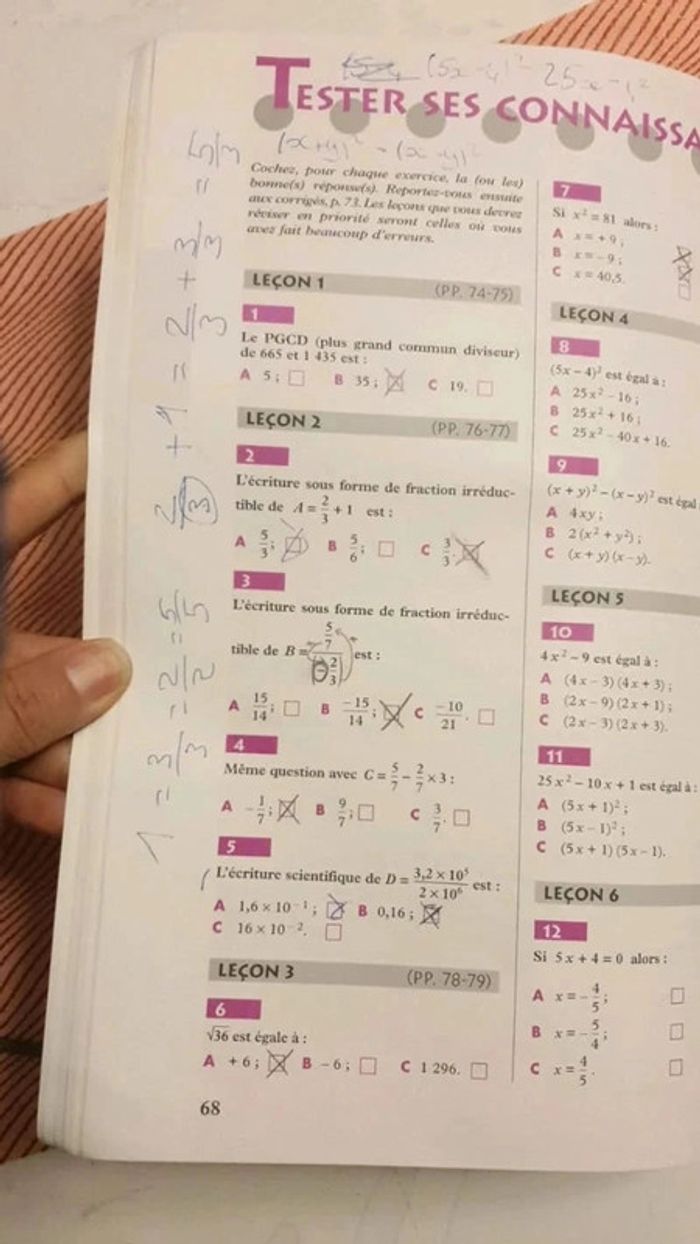 (5x-4)² 25x-4²
TESTER SES CONNAISSA
(x+y)² - (x-y)²
Cochez, pour chaque exercice, la (ou les)
bonne(s) réponse(s). Reportez-vous ensuite
aux corrigés, p. 73. Les leçons que vous devrez
réviser en priorité seront celles où vous
avez fait beaucoup d'erreurs.
LEÇON 1 (PP. 74-75)
1
Le PGCD (plus grand commun diviseur)
de 665 et 1 435 est :
A 5 ; B 35 ; C 19.
LEÇON 2 (PP. 76-77)
2
L'écriture sous forme de fraction irréduc-
tible de A = 2/3 + 1 est :
A 5/3 ; B 5/6 ; C 3/3.
3
L'écriture sous forme de fraction irréduc-
tible de B = 5/7 / (-2/3) est :
A 15/14 ; B -15/14 ; C -10/21.
4
Même question avec C = 5/7 - 2/7 × 3 :
A -1/7 ; B 9/7 ; C 3/7.
5
L'écriture scientifique de D = 3,2 × 10⁵ / 2 × 10⁶ est :
A 1,6 × 10⁻¹ ; B 0,16 ;
C 16 × 10⁻².
LEÇON 3 (PP. 78-79)
6
√36 est égale à :
A +6 ; B -6 ; C 1 296.
68
7
Si x² = 81 alors :
A x = +9 ;
B x = -9 ;
C x = 40,5.
LEÇON 4
8
(5x - 4)² est égal à :
A 25x² - 16 ;
B 25x² + 16 ;
C 25x² - 40x + 16.
9
(x + y)² - (x - y)² est égal
A 4xy ;
B 2(x² + y²) ;
C (x + y)(x - y).
LEÇON 5
10
4x² - 9 est égal à :
A (4x - 3)(4x + 3) ;
B (2x - 9)(2x + 1) ;
C (2x - 3)(2x + 3).
11
25x² - 10x + 1 est égal à :
A (5x + 1)² ;
B (5x - 1)² ;
C (5x + 1)(5x - 1).
LEÇON 6
12
Si 5x + 4 = 0 alors :
A x = -4/5 ;
B x = -5/4 ;
C x = 4/5.
2/3 + 1 = 2/3 + 3/3 = 5/3
1 = 3/3 = 2/2 = 5/5